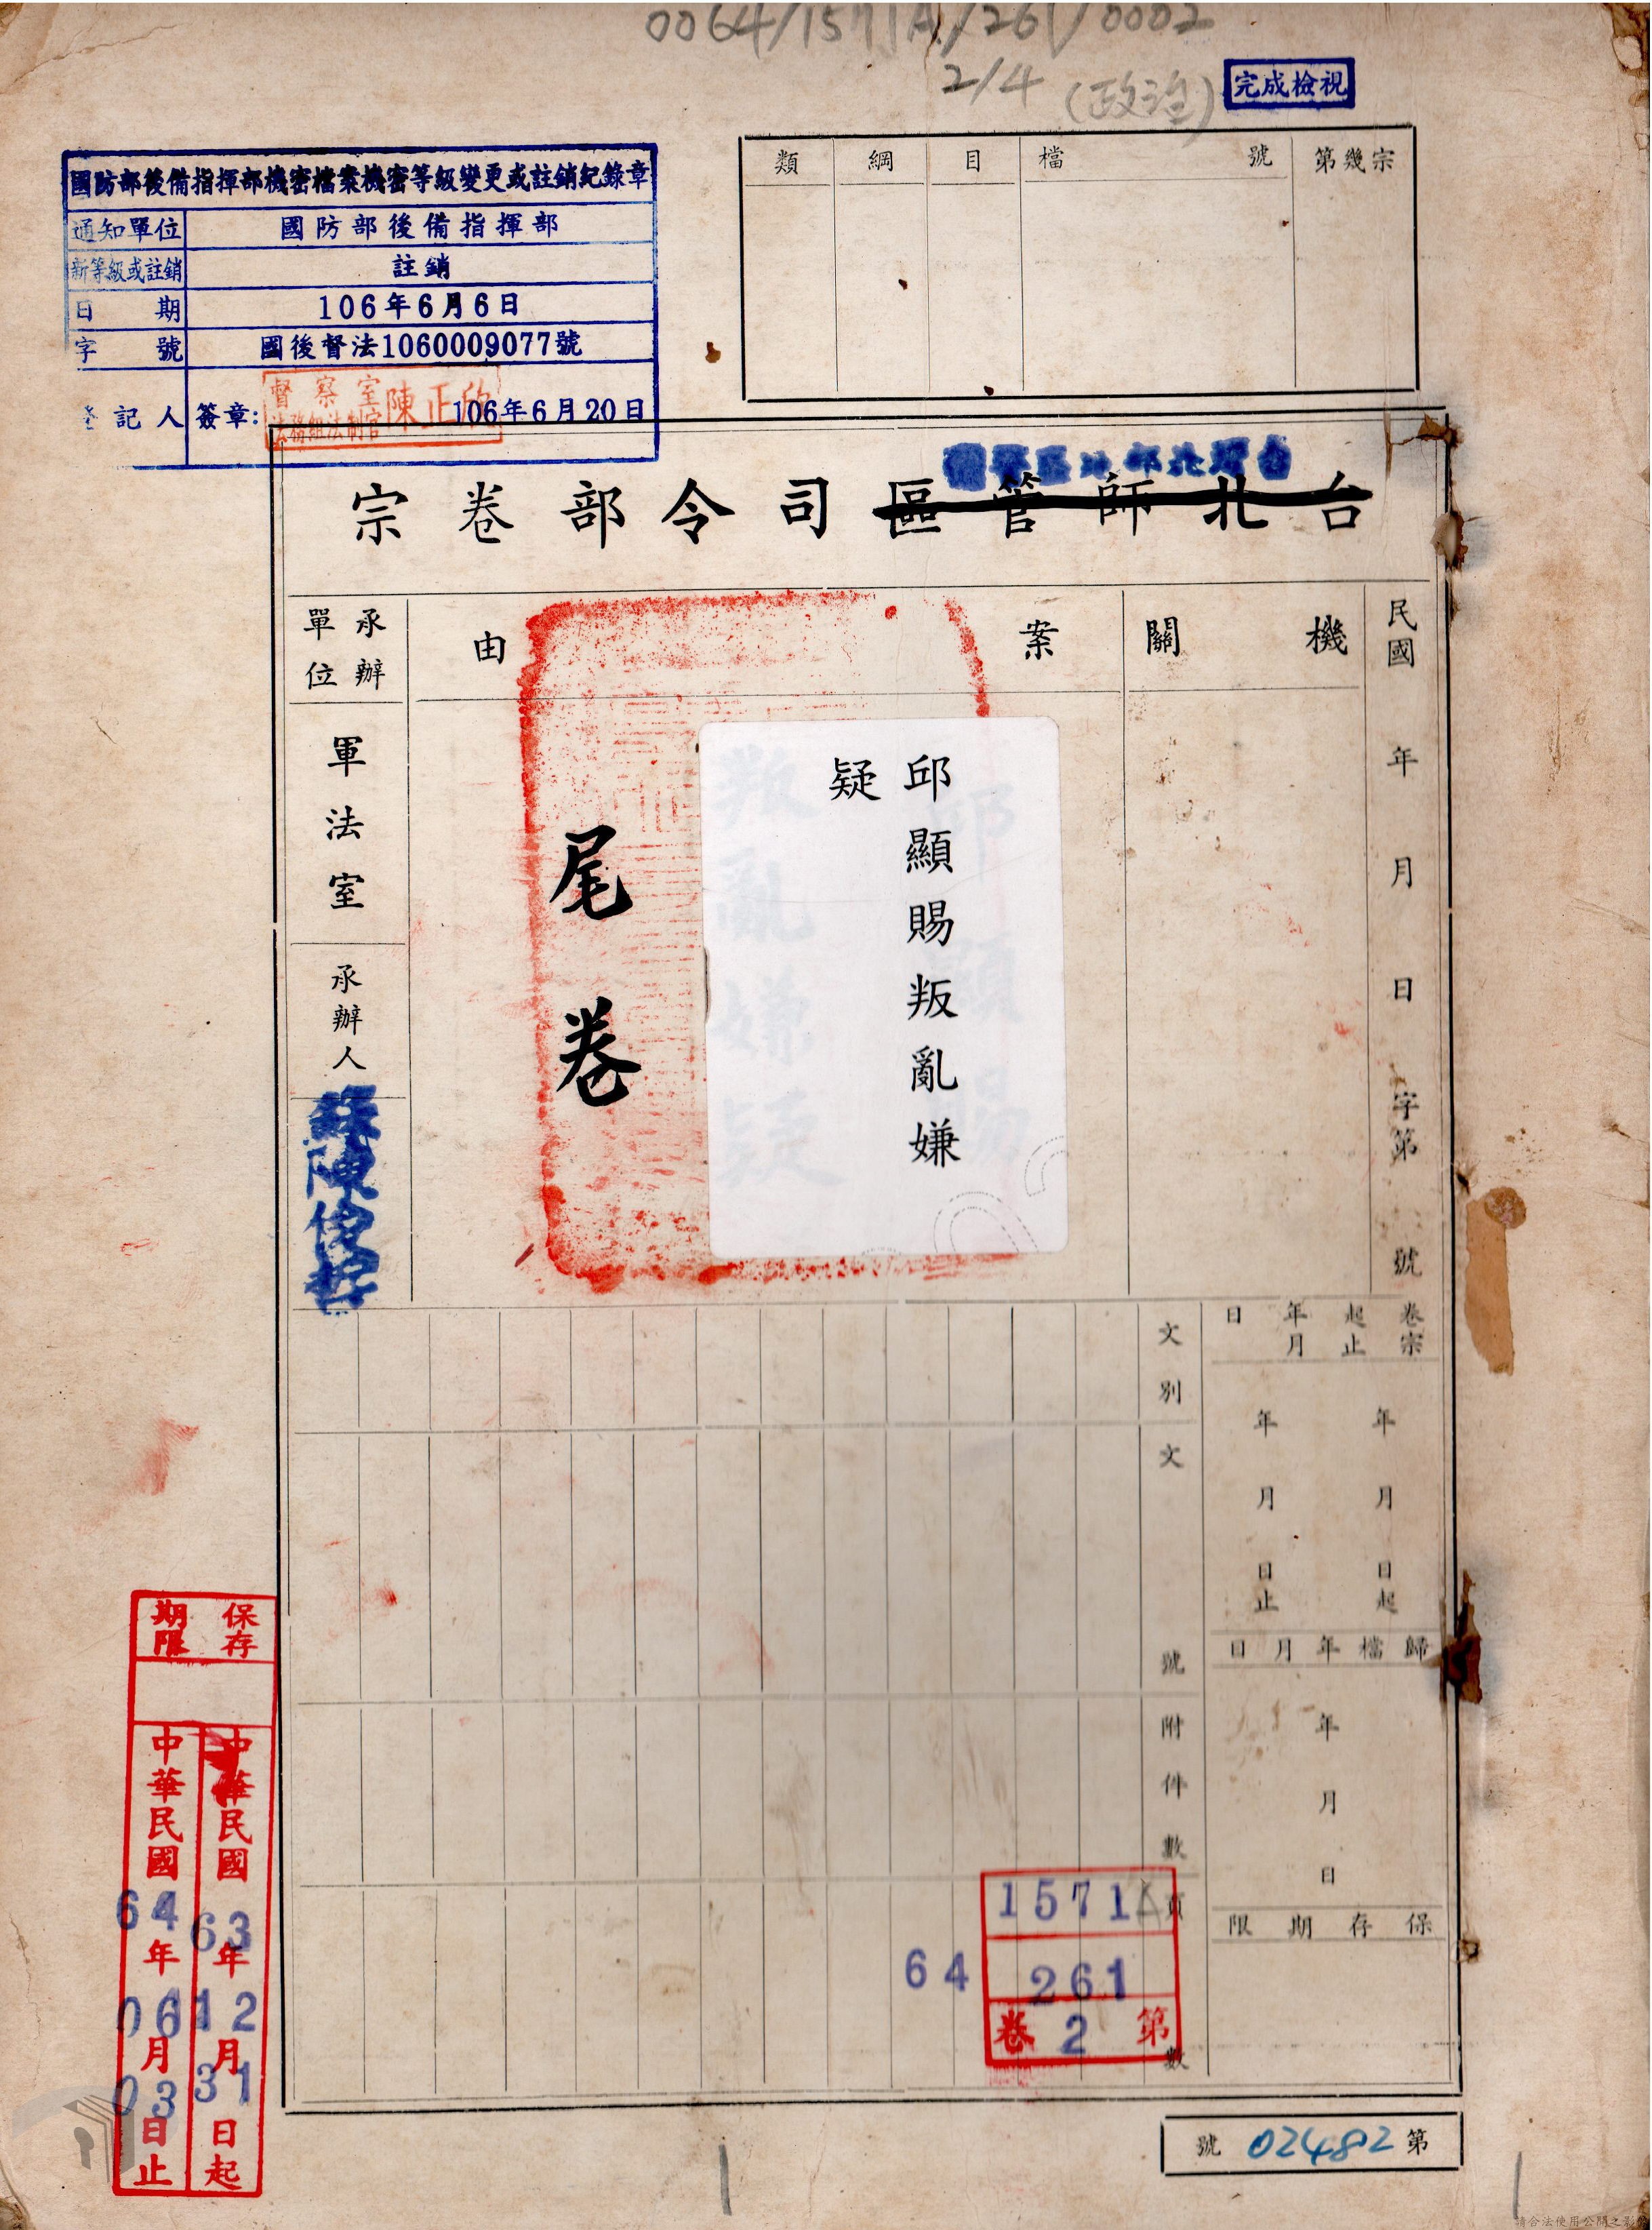 0064/1571A/261/0002
2/4
(政治)
完成檢視
國防部後備指揮部機密檔案機密等級變更或註銷紀錄章
通知單位 國防部後備指揮部
新等級或註銷 註銷
日期 106年6月6日
字號 國後督法1060009077號
記人 簽章:
督察室
法務組法制官
陳正欣
106年6月20日
類 綱 目 檔號 第幾宗
台北師管區司令部卷宗
民國 年 月 日 字第 號
機關
案由
邱顯賜叛亂嫌
疑
尾卷
承辦
單位
軍法室
承辦人
卷宗
起止
年月
日
年 月 日起
年 月 日止
歸檔年月日
年 月 日
保存期限
文別
文號
附件數
頁數
1571A
64
261
第2卷
保存
期限
中華民國63年12月31日起
中華民國64年06月03日止
第02482號
請合法使用公開之影像